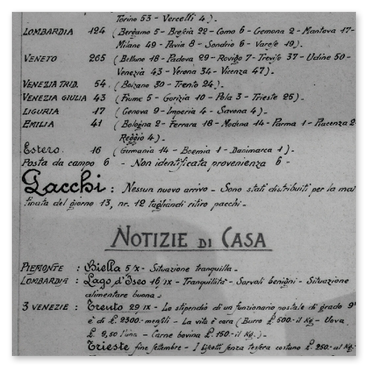 Torino 53 - Vercelli 4.)
LOMBARDIA 124 (Bergamo 5 - Brezia 22 - Como 6 - Cremona 2 - Mantova 17 -
Milano 49 - Pavia 8 - Sondrio 6 - Varese 19).
VENETO 265 (Belluno 18 - Padova 29 - Rovigo 7 - Treviso 37 - Udine 50 -
Venezia 43 - Verona 34 - Vicenza 47).
VENEZIA TRID. 54. (Bolzano 30 - Trento 24).
VENEZIA GIULIA 43 (Fiume 5 - Gorizia 10 - Pola 3 - Trieste 25).
LIGURIA 17 (Genova 9 - Imperia 4 - Savona 4).
EMILIA 41 (Bologna 2 - Ferrara 16 - Modena 14 - Parma 1 - Piacenza 2
Reggio 4).
Estero. 16 (Germania 14 - Boemia 1 - Danimarca 1).
Posta da campo 6 - Non identificata provenienza 6 -
Pacchi: Nessun nuovo arrivo - Sono stati distribuiti per la mat
tinata del giorno 13, nr. 12 tagliandi ritiro pacchi -
NOTIZIE DI CASA
PIEMONTE : Biella 5 X - Situazione tranquilla -
LOMBARDIA : Lago d'Iseo 16 IX - Tranquillità - Servali benigni - Situazione
alimentare buona -
3 VENEZIE : Trento 29 IX - Lo stipendio di un funzionario postale di grado 9°
è di £ 2300 - mensili - La vita è cara (Burro £ 500 - il Kg - Uova
£ 9,50 l'una - Carne bovina £ 150 - il Kg.) -
Trieste fine settembre - I senza tessera costano £ 250 - al kg.